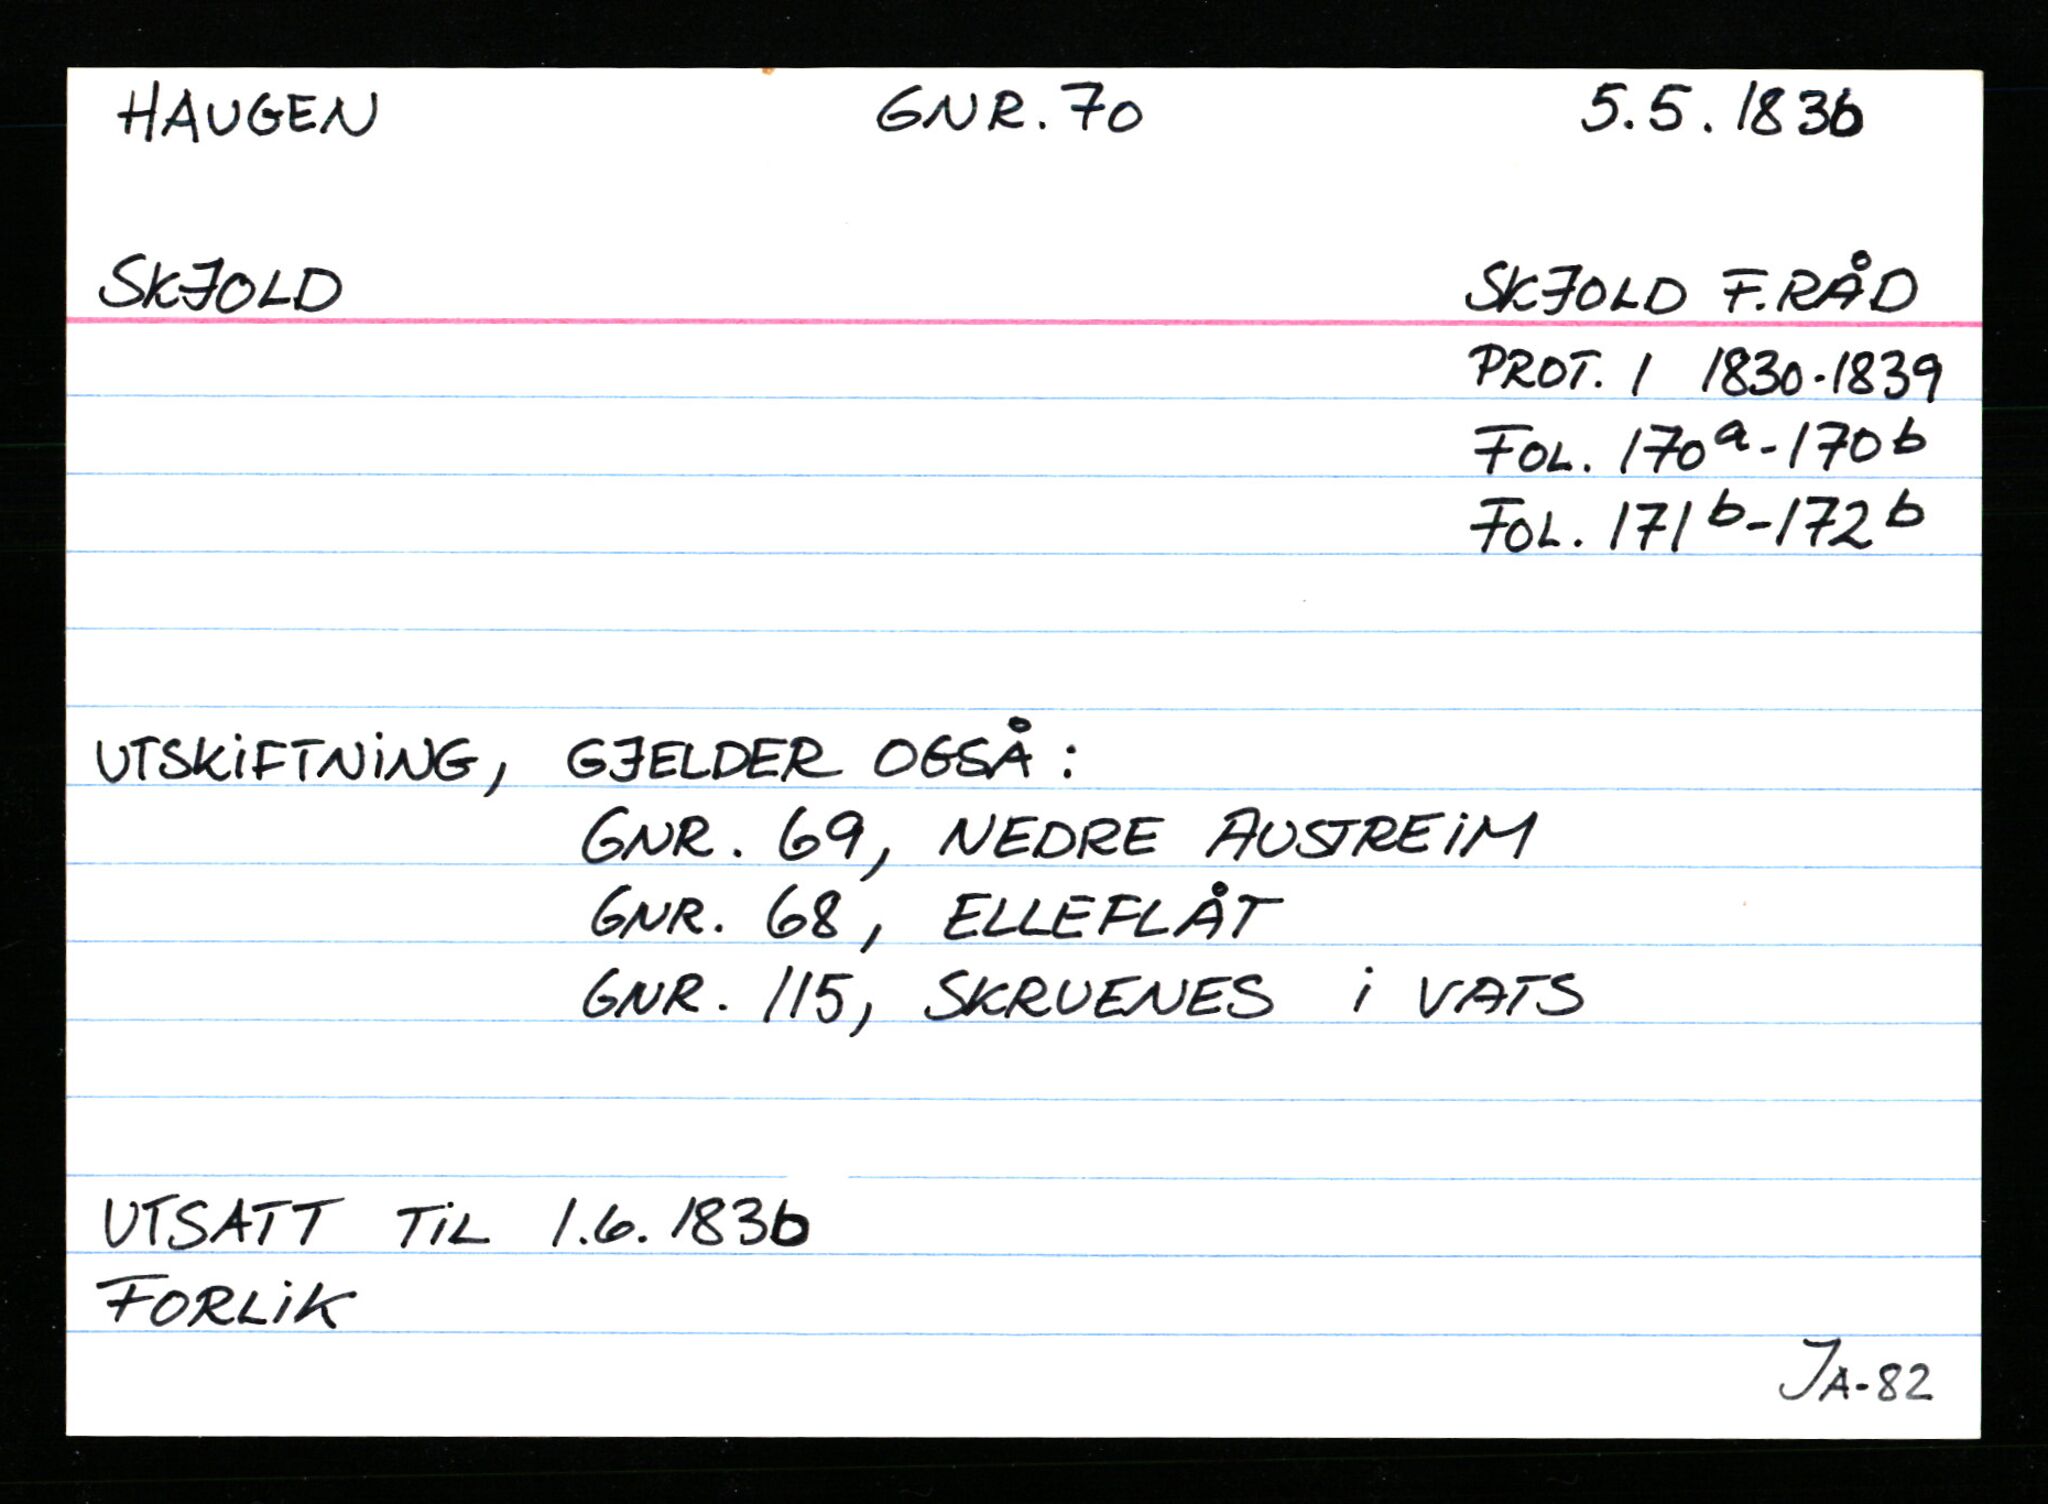 HAUGEN GNR. 70 5.5.1836
SKJOLD SKJOLD F.RÅD
PROT. 1 1830-1839
FOL. 170a-170b
FOL. 171b-172b
UTSKIFTNING, GJELDER OGSÅ:
GNR. 69, NEDRE AUSTREIM
GNR. 68, ELLEFLÅT
GNR. 115, SKRUENES i VATS
UTSATT TIL 1.6.1836
FORLIK
JA-82